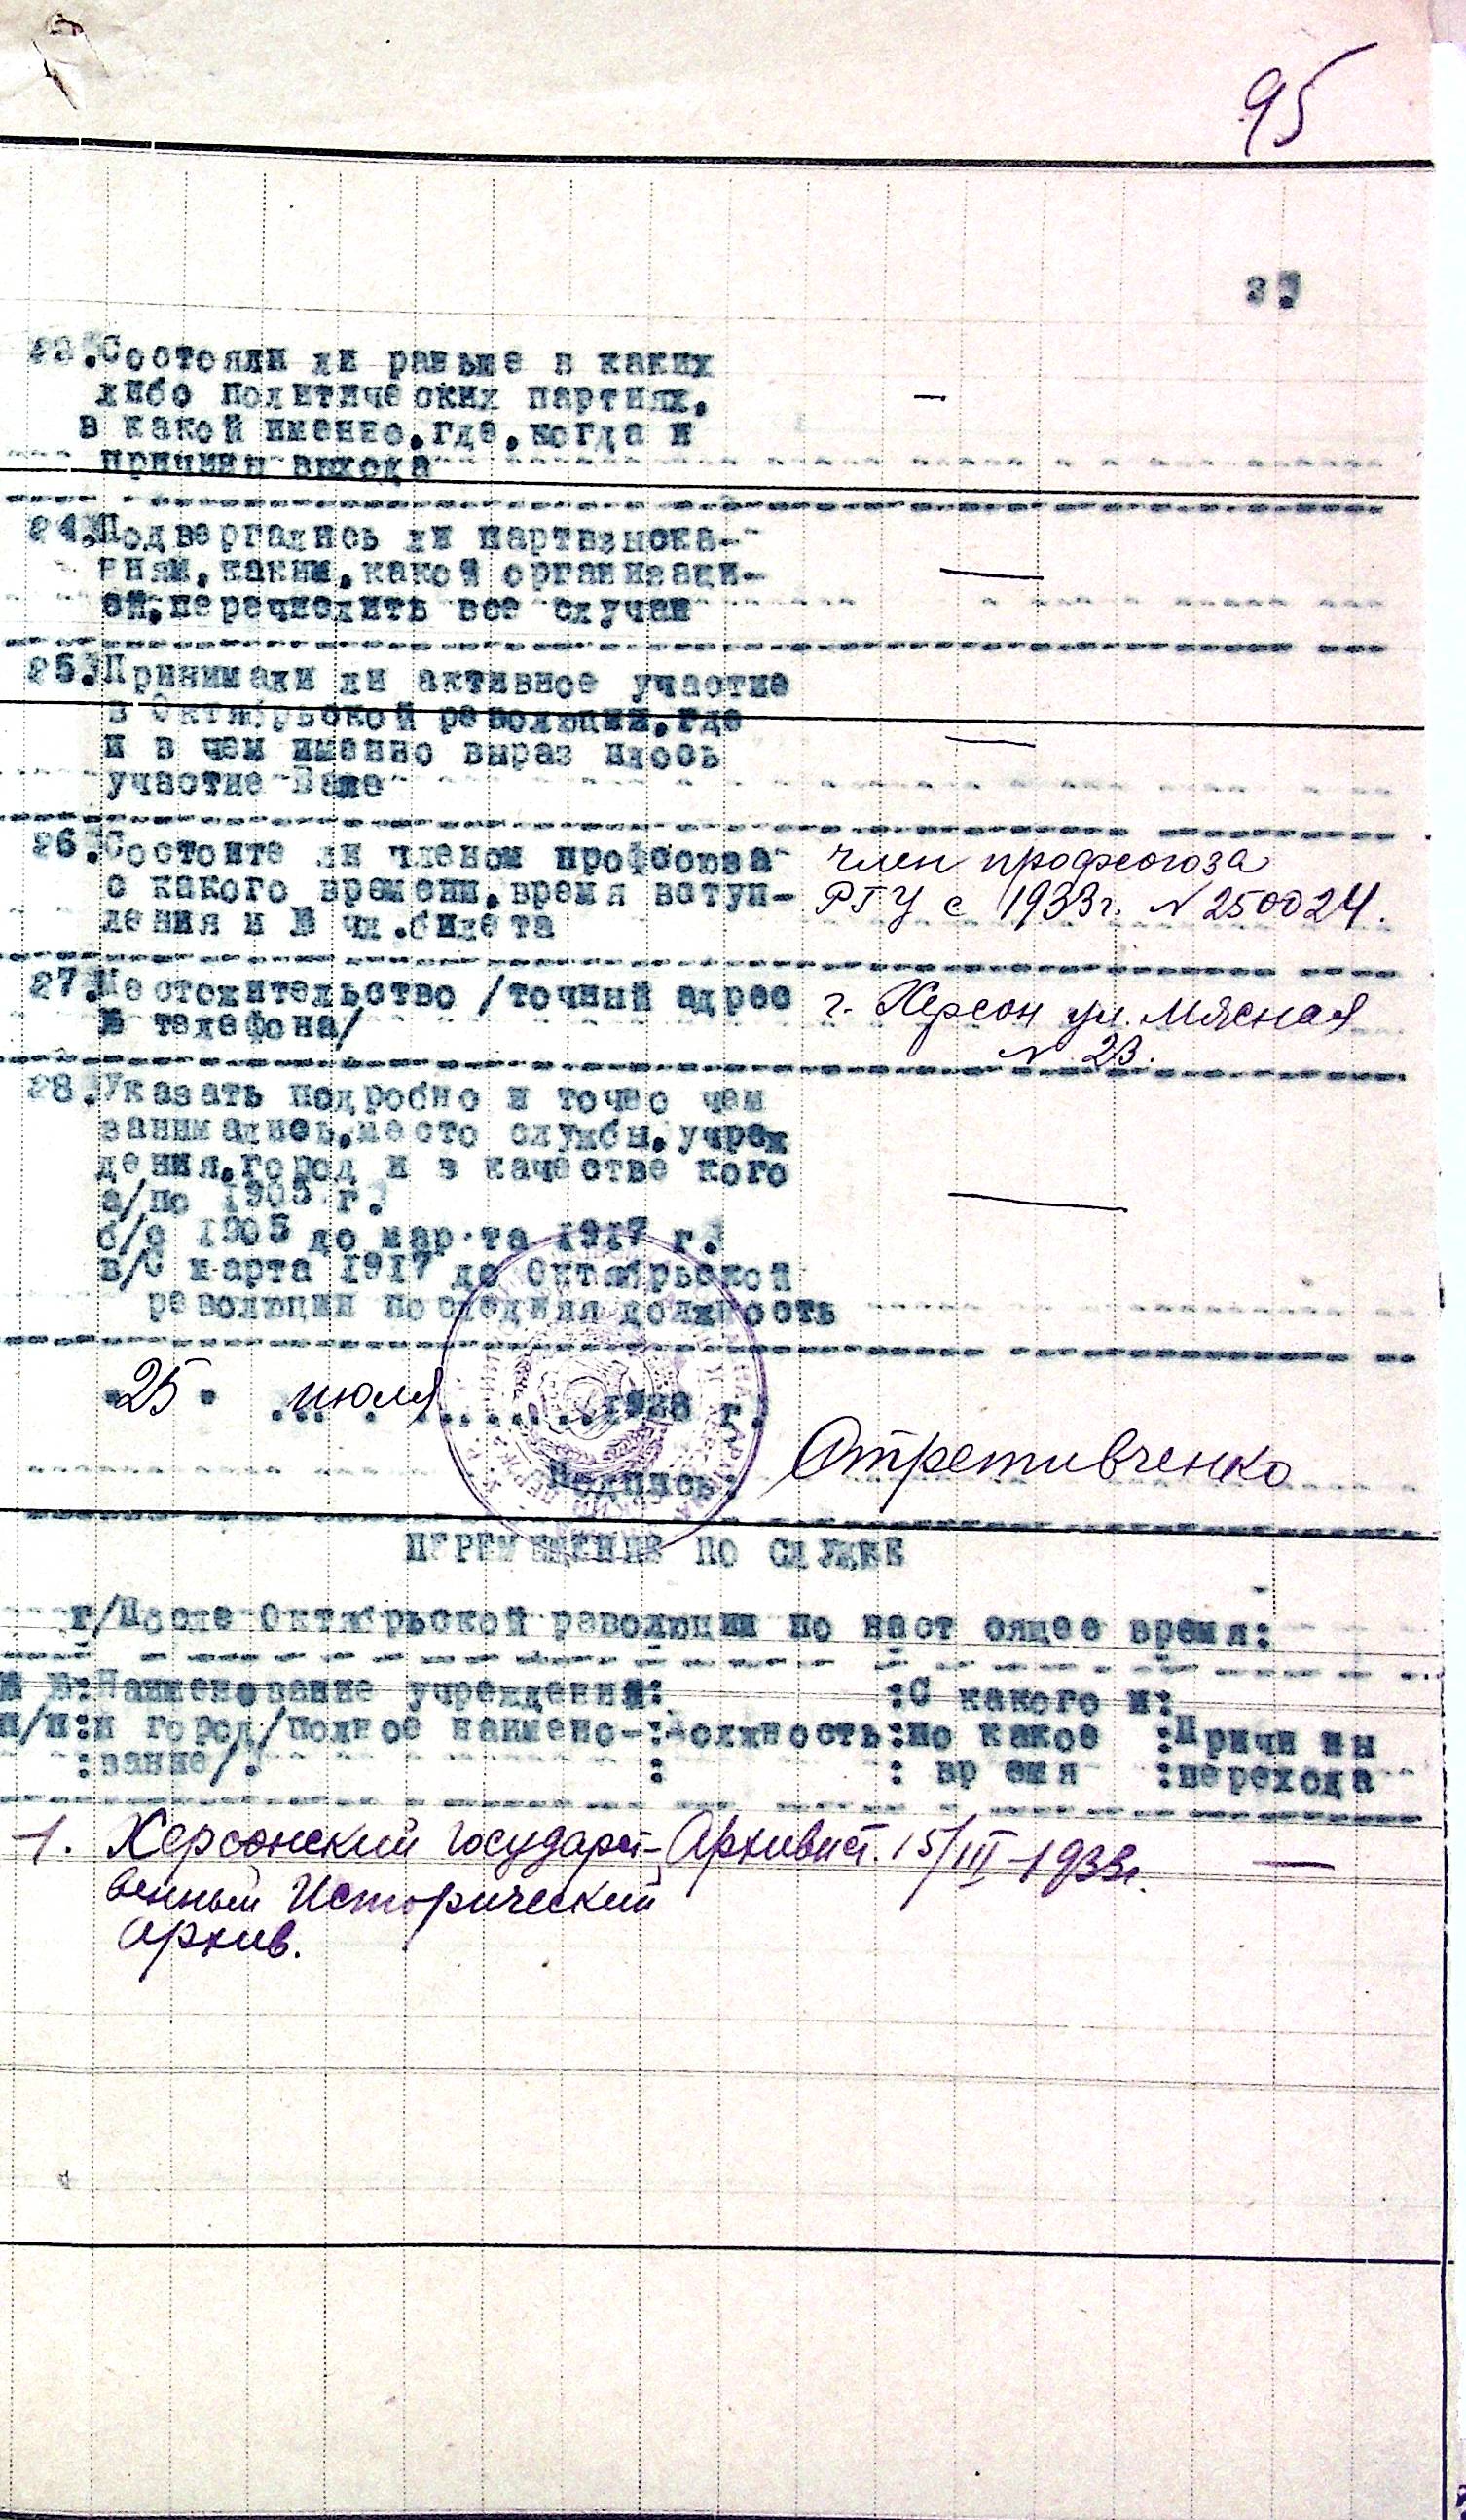 95
3.
23. Состояли ли раньше в каких
либо политических партиях,
в какой именно, где, когда и
причины выхода —
24. Подвергались ли партвзыска-
ниям, каким, какой организаци- —
ей, перечислить все случаи
25. Принимали ли активное участие
в Октябрьской революции, где
и в чем именно выразилось —
участие Ваше
26. Состоите ли членом профсоюза член профсоюза
с какого времени, время вступ- РГУ с 1933г. № 250024.
ления и № чл. билета
27. Местожительство /точный адрес г. Херсон ул. Мясная
№ телефона/ № 23.
28. Указать подробно и точно чем
занимались, место службы, учреж
дения, город и в качестве кого
а/по 1905 г. —
б/с 1905 до марта 1917 г.
в/С марта 1917 до Октябрьской
революции последняя должность
25. июля 1938 г.
Подпись:
ПЕРЕМЕЩЕНИЕ ПО СЛУЖБЕ
г/После Октябрьской революции по настоящее время:
№ №:Наименование учреждения: :С какого и:
п/п:и город/полное наимено-:Должность:по какое :Причины
:вание/. : : время :перехода
1. Херсонский государст- Архивист. 15/III-1938г. —
венный Исторический
архив.